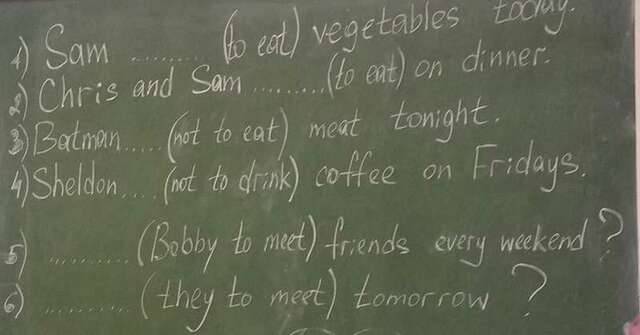 1) Sam ......... (to eat) vegetables today.
2) Chris and Sam ......... (to eat) on dinner.
3) Batman..... (not to eat) meat tonight.
4) Sheldon.... (not to drink) coffee on Fridays.
5) ......... (Bobby to meet) friends every weekend?
6) ......... (they to meet) tomorrow?